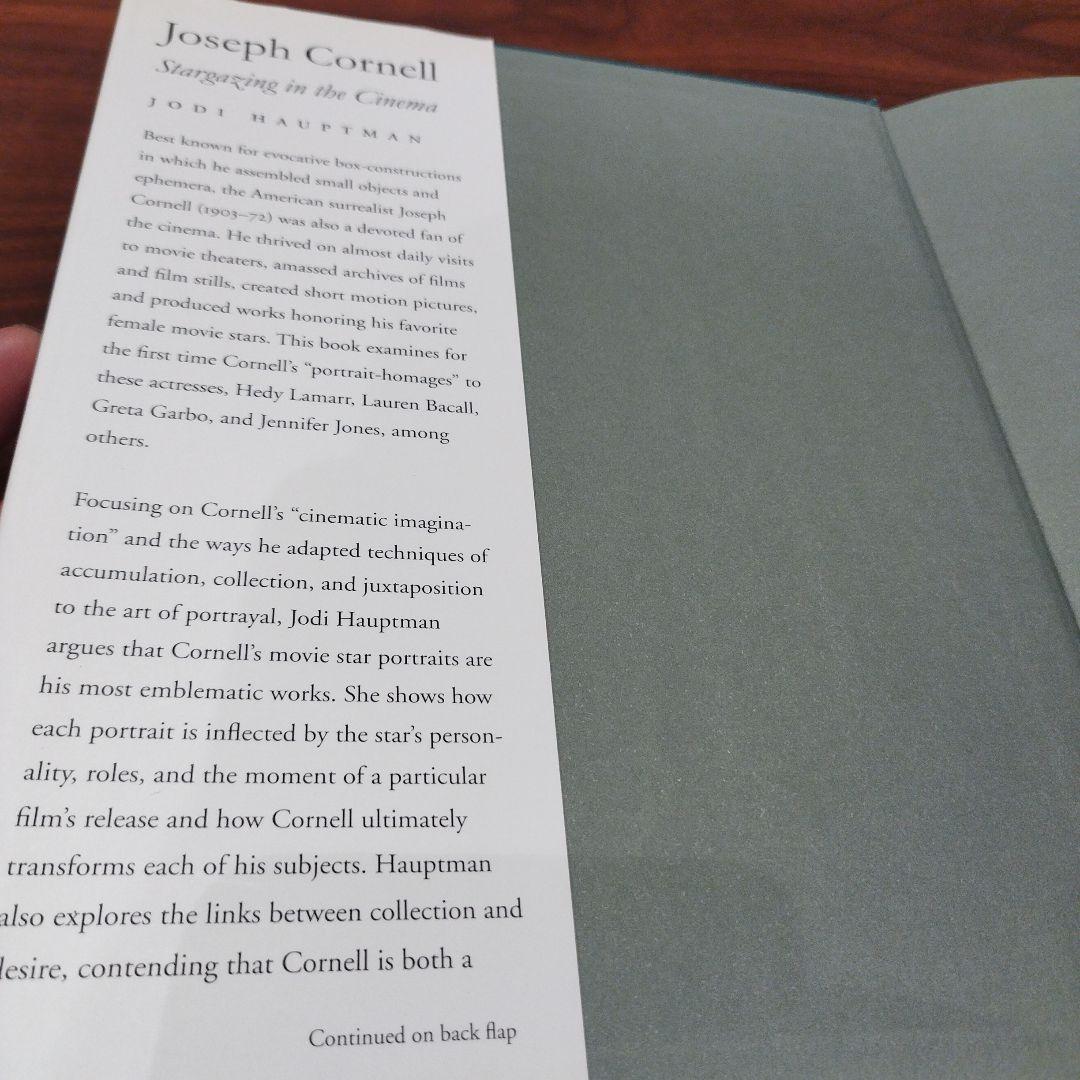 Joseph Cornell
Stargazing in the Cinema
JODI HAUPTMAN
Best known for evocative box-constructions
in which he assembled small objects and
ephemera, the American surrealist Joseph
Cornell (1903–72) was also a devoted fan of
the cinema. He thrived on almost daily visits
to movie theaters, amassed archives of films
and film stills, created short motion pictures,
and produced works honoring his favorite
female movie stars. This book examines for
the first time Cornell's “portrait-homages” to
these actresses, Hedy Lamarr, Lauren Bacall,
Greta Garbo, and Jennifer Jones, among
others.
Focusing on Cornell's “cinematic imagina-
tion” and the ways he adapted techniques of
accumulation, collection, and juxtaposition
to the art of portrayal, Jodi Hauptman
argues that Cornell's movie star portraits are
his most emblematic works. She shows how
each portrait is inflected by the star's person-
ality, roles, and the moment of a particular
film's release and how Cornell ultimately
transforms each of his subjects. Hauptman
also explores the links between collection and
desire, contending that Cornell is both a
Continued on back flap